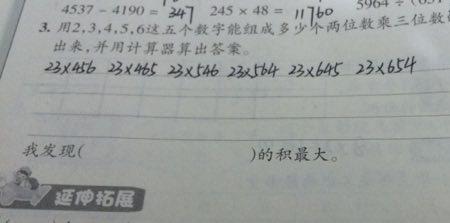 4537 - 4190 = 347 245 × 48 = 11760 5964 ÷ (
3. 用2,3,4,5,6这五个数字能组成多少个两位数乘三位数
出来,并用计算器算出答案。
23×456 23×465 23×546 23×564 23×645 23×654
我发现( )的积最大。
延伸拓展